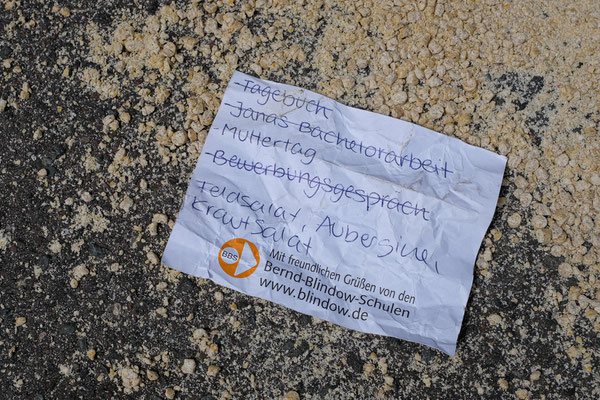 - Tagebuch
- Janas Bachelorarbeit
- Muttertag
- Bewerbungsgespräch
Feldsalat, Aubergine,
Krautsalat
BBS
Mit freundlichen Grüßen von den
Bernd-Blindow-Schulen
www.blindow.de